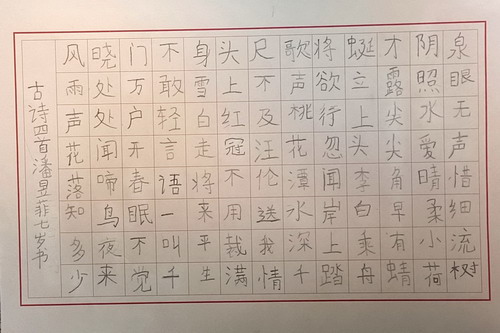 泉眼无声惜细流树
阴照水爱晴柔小荷
才露尖尖角早有蜻
蜓立上头李白乘舟
将欲行忽闻岸上踏
歌声桃花潭水深千
尺不及汪伦送我情
头上红冠不用裁满
身雪白走将来平生
不敢轻言语一叫千
门万户开春眠不觉
晓处处闻啼鸟夜来
风雨声花落知多少
古诗四首潘昱菲七岁书